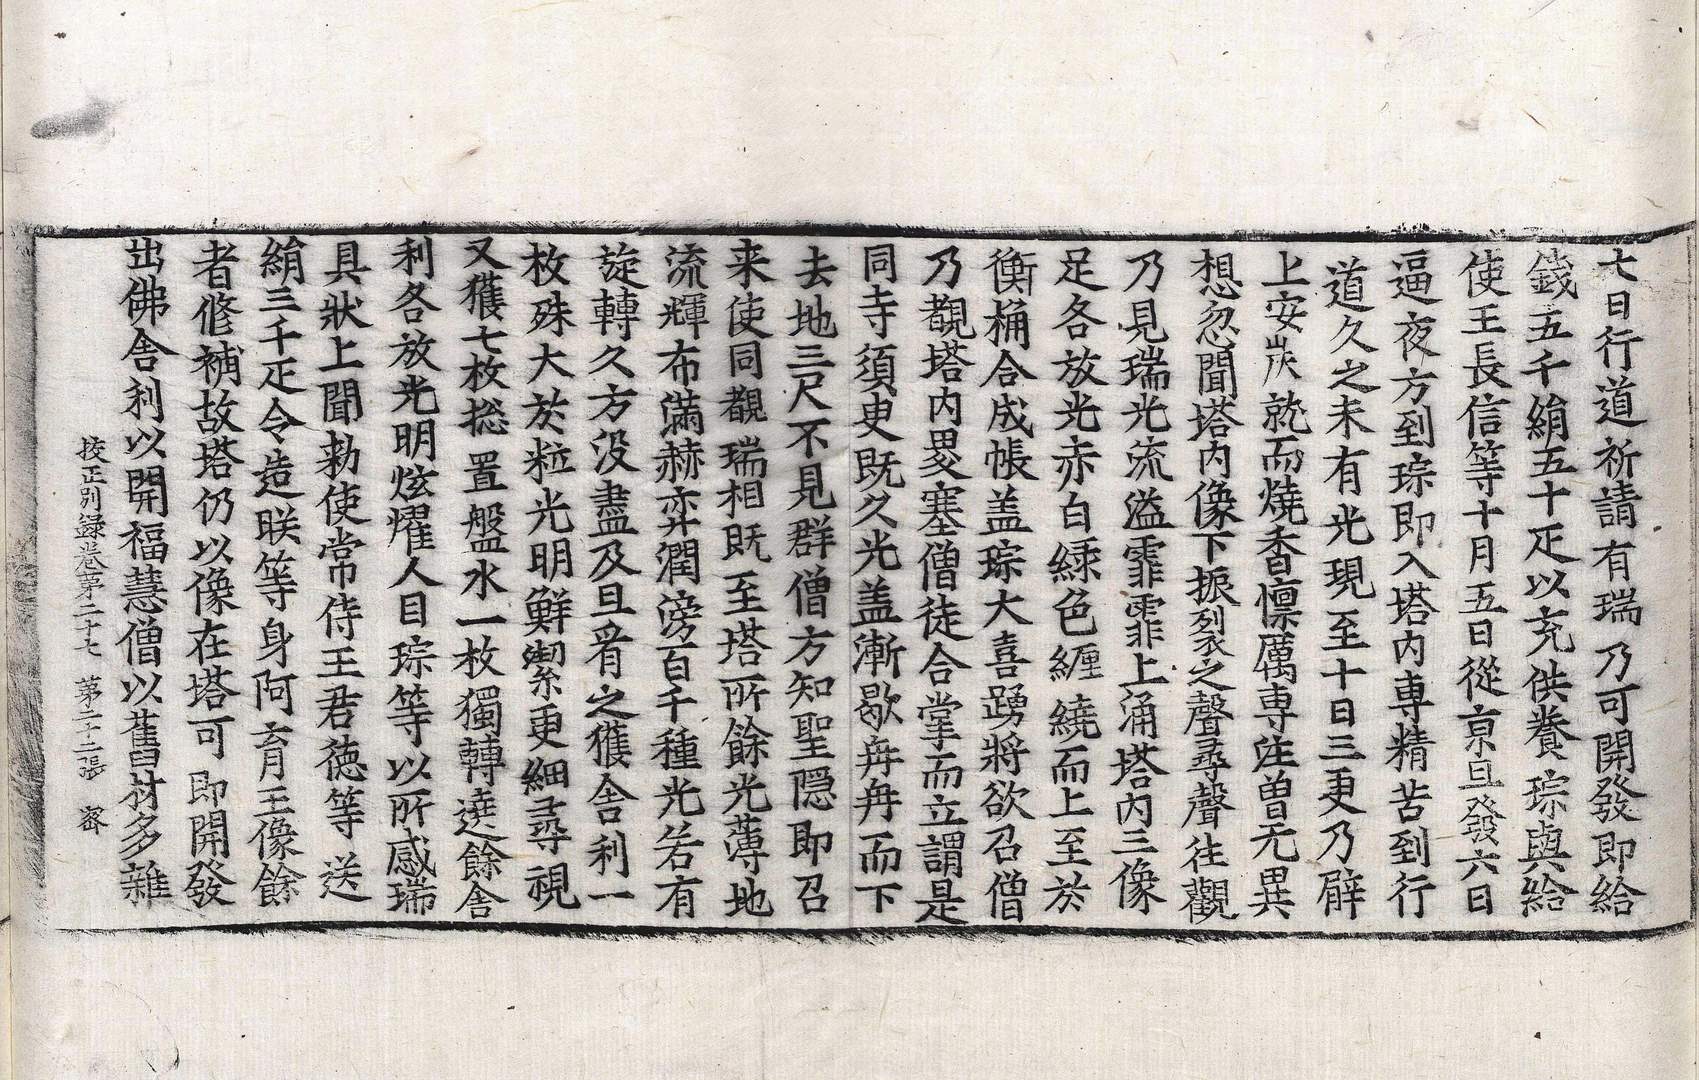 七日行道祈請有瑞乃可開發即給
錢五千絹五十疋以充供養琮與給
使王長信等十月五日從京旦發六日
逼夜方到琮即入塔內専精苦到行
道久之未有光現至十日三更乃臂
上安炭就而燒香懍厲専注曽无異
想忽聞塔内像下振裂之聲尋聲往觀
乃見瑞光流溢霏霏上涌塔内三像
足各放光赤白綠色纏繞而上至於
衡桷合成帳盖琮大喜踴將欲召僧
乃覩塔内畟塞僧徒合掌而立謂是
同寺須臾既久光盖漸歇冉冉而下
去地三尺不見群僧方知聖隠即召
来使同覩瑞相既至塔所餘光薄地
流輝布滿赫弈潤滂百千種光若有
旋轉久方沒盡及旦看之獲舍利一
枚殊大於粒光明鮮潔更細尋視
又獲七枚捴置盤水一枚獨轉遶餘舍
利各放光明炫燿人目琮等以所感瑞
具狀上聞勑使常侍王君徳等送
絹三千疋令造朕等身阿育王像餘
者修補故塔仍以像在塔可即開發
出佛舎利以開福慧僧以舊材多雜
挍正别録卷苐二十七 苐二十二張 宻